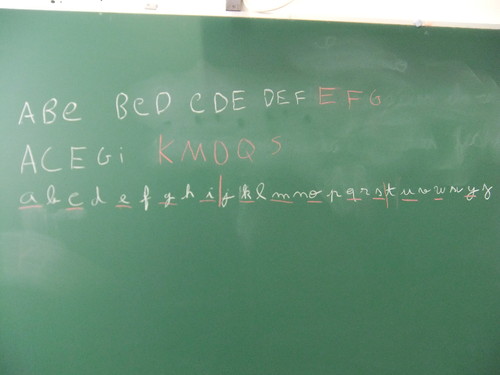 ABC BCD CDE DEF EFG
ACEGi KMOQS
a b c d e f g h i j k l m n o p q r s t u v w x y z